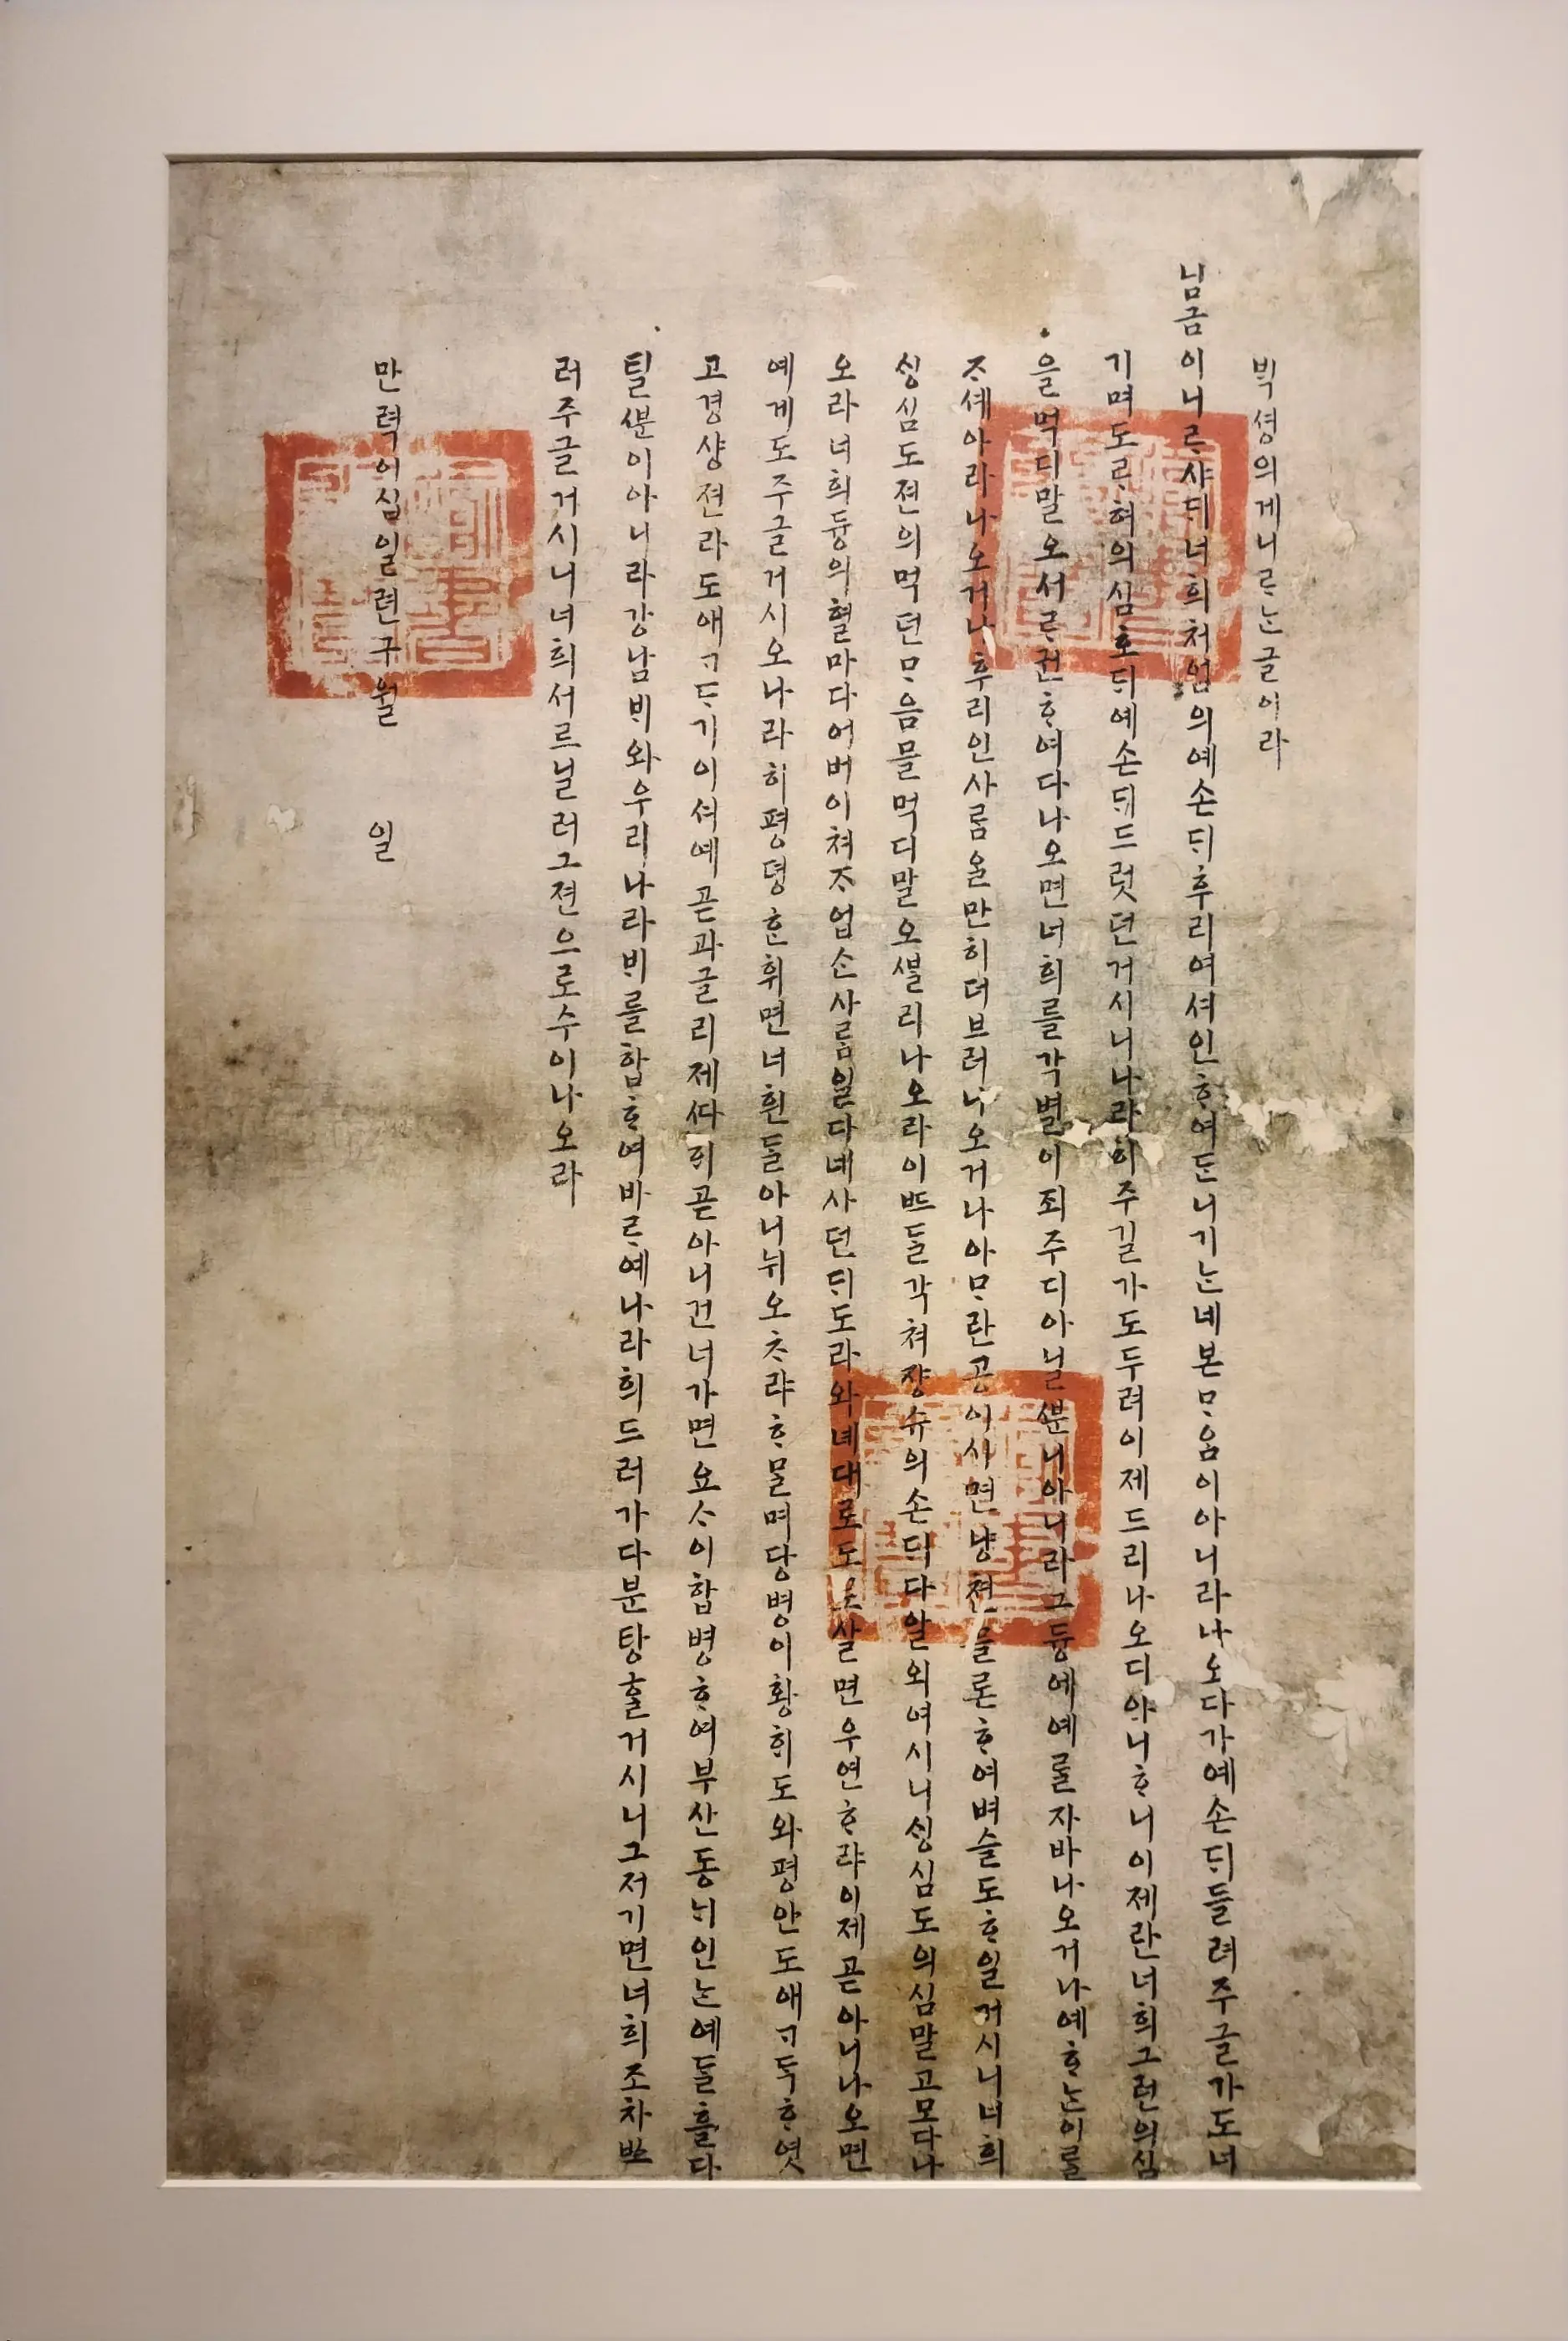 ᄇᆡᆨ셩의게니ᄅᆞᄂᆞᆫ글이라
님금이니ᄅᆞ샤ᄃᆡ너희처엄의예손ᄃᆡ후리여셔인ᄒᆞ여ᄃᆞᆫ니기ᄂᆞᆫ네본ᄆᆞᄋᆞᆷ이아니라나오다가예손ᄃᆡ들려주글가도너
기며도ᄅᆞ혀의심ᄒᆞᄃᆡ예손ᄃᆡ드럿던거시니나라히주길가도두려이제드리나오디아니ᄒᆞ니이제란너희그런의심
을먹디말오서ᄅᆞ권ᄒᆞ여다나오면너희를각별이죄주디아닐ᄲᅮᆫ니아니라그듕에예ᄅᆞᆯ자바나오거나예ᄒᆞᄂᆞᆫ이ᄅᆞᆯ
ᄌᆞ셰아라나오거나후리인사ᄅᆞᆷ을만히더브러나오거나아ᄆᆞ란공이시면냥쳔을론ᄒᆞ여벼슬도ᄒᆞ일거시니너희
ᄉᆡᆼ심도젼의먹던ᄆᆞ음믈먹디말오ᄲᆞᆯ리나오라이ᄠᅳ들각쳐쟝슈의손ᄃᆡ다알외여시니ᄉᆡᆼ심도의심말고모다나
오라너희듕의혈마다어버이쳐ᄌᆞ업ᄉᆞᆫ사ᄅᆞᆷ일다녜사던ᄃᆡ도라와녜대로도로살면우연ᄒᆞ랴이제곧아니나오면
예게도주글거시오나라히평뎡ᄒᆞᆫ휘면너흰ᄃᆞᆯ아니뉘오ᄎᆞ랴ᄒᆞᄆᆞᆯ며당병이황ᄒᆡ도와평안도애ᄀᆞ득ᄒᆞ엿
고경샹젼라도애ᄀᆞᄃᆞ기이셔예곧과글리제ᄯᅡᄒᆡ곧아니건너가면요ᄉᆞ이합병ᄒᆞ여부산동ᄂᆡ인ᄂᆞᆫ예ᄃᆞᆯᄒᆞᆯ다
틸ᄲᅮᆫ이아니라강남ᄇᆡ와우리나라ᄇᆡ를합ᄒᆞ여바ᄅᆞ예나라희드러가다분탕ᄒᆞᆯ거시니그저기면너희조차ᄡᅳ
러주글거시니너희서르닐러그젼으로수이나오라
만력이십일련구월 일